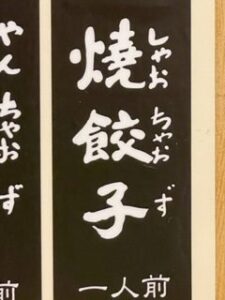 燒餃子
しゃお ちゃお ず
一人前
やん ちゃお ず
前